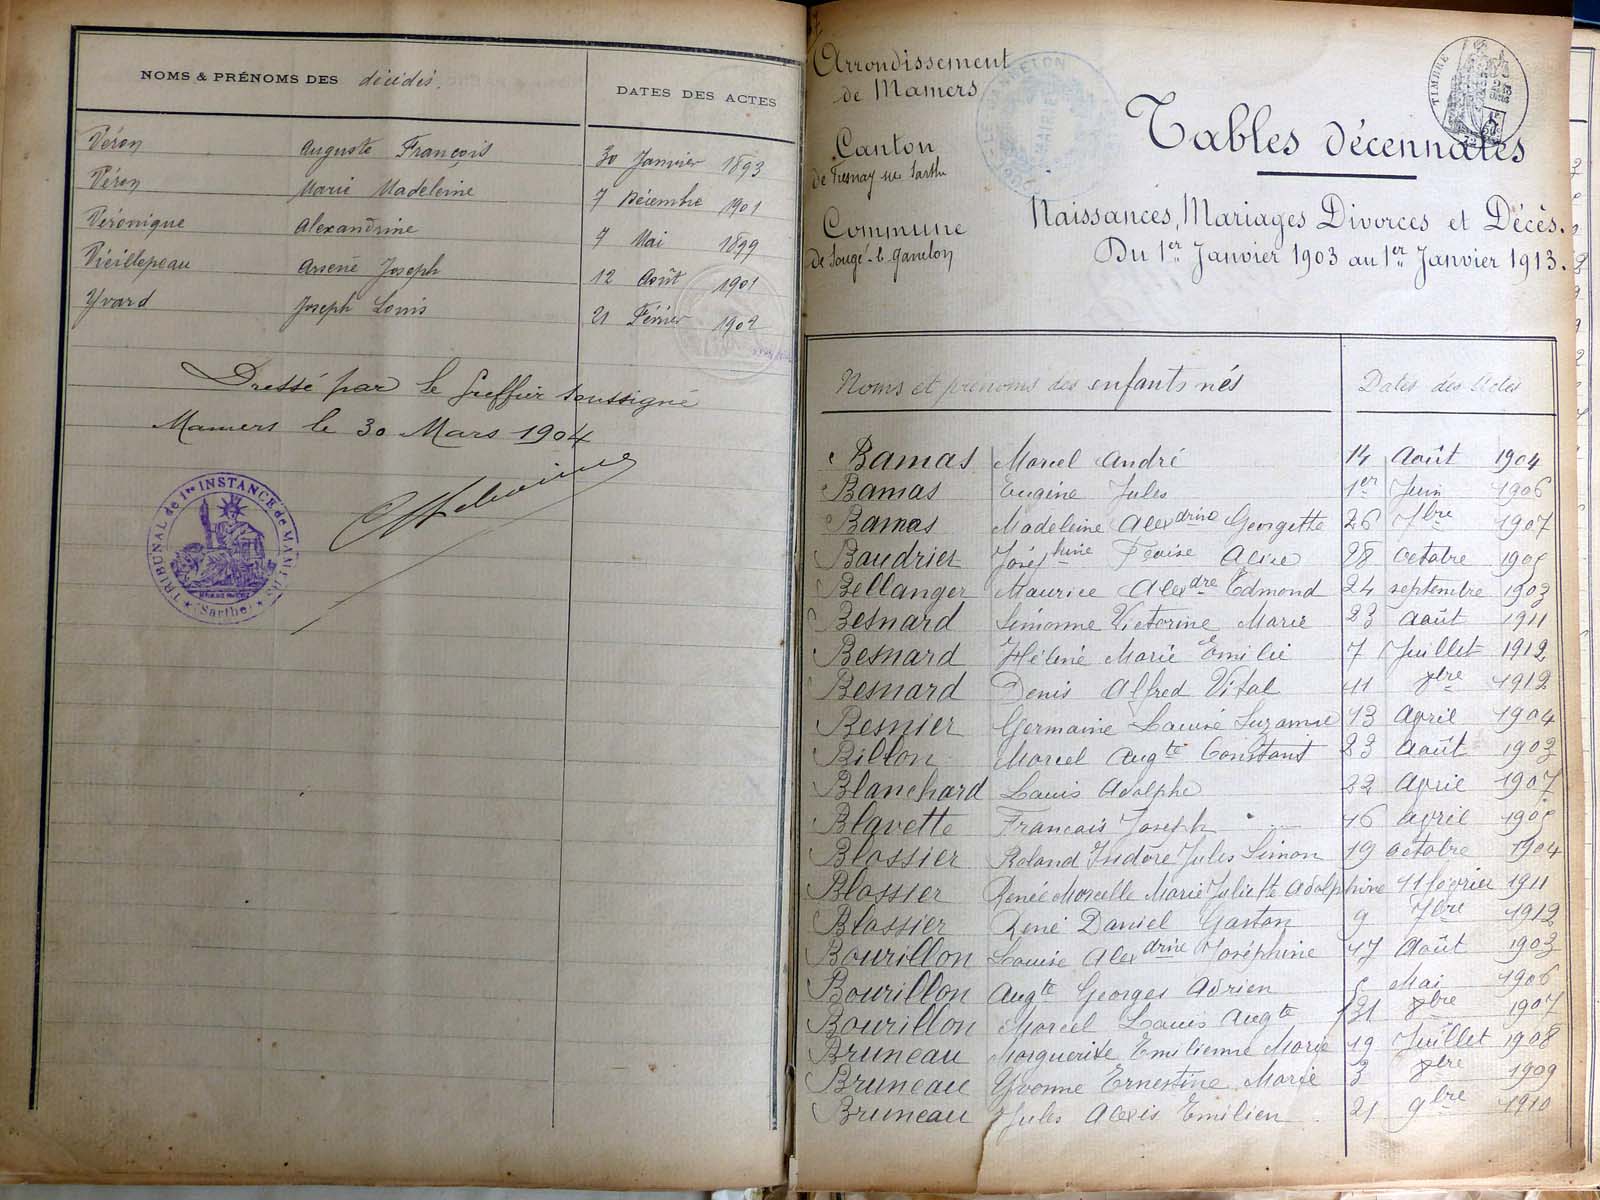 NOMS & PRÉNOMS DES décédés.
DATES DES ACTES
Véron Auguste François 30 Janvier 1893
Véron Marie Madeleine 7 Décembre 1901
Véronique Alexandrine 7 Mai 1899
Vieillepeau Arsène Joseph 12 Août 1901
Yvard Joseph Louis 21 Février 1902
Dressé par le Greffier soussigné
Mamers le 30 Mars 1904
TRIBUNAL de 1re INSTANCE de MAMERS
(Sarthe)
Arrondissement
de Mamers
Canton
de Fresnay sur Sarthe
Commune
de Sougé-le-Ganelon
MAIRIE
TIMBRE
Tables décennales
Naissances, Mariages Divorces et Décès.
Du 1er Janvier 1903 au 1er Janvier 1913.
Noms et prénoms des enfants nés
Dates des Actes
Bamas Marcel André 14 Août 1904
Bamas Eugène Jules 1er Juin 1906
Bamas Madeleine Alexdrine Georgette 26 7bre 1907
Baudrier Joséphine Louise Alice 28 octobre 1905
Bellanger Maurice Alexdre Edmond 24 septembre 1903
Besnard Simonne Victorine Marie 23 août 1911
Besnard Hélène Marie Emilie 7 Juillet 1912
Besnard Denis Alfred Vital 11 8bre 1912
Besnier Germaine Louise Suzanne 13 Avril 1904
Billon Marcel Augte Constant 23 Août 1903
Blanchard Louis Adolphe 22 Avril 1907
Blavette François Joseph 16 avril 1905
Blossier Roland Isidore Jules Simon 19 octobre 1904
Blossier Renée Marcelle Marie Juliette Adolphine 11 février 1911
Blossier René Daniel Gaston 9 7bre 1912
Bourillon Louise Alexdrine Joséphine 17 Août 1903
Bourillon Augte Georges Adrien Mai 1906
Bourillon Marcel Louis Augte 31 8bre 1907
Bruneau Marguerite Emilienne Marie 19 Juillet 1908
Bruneau Yvonne Ernestine Marie 3 8bre 1909
Bruneau Jules Alexis Emilien 21 9bre 1910